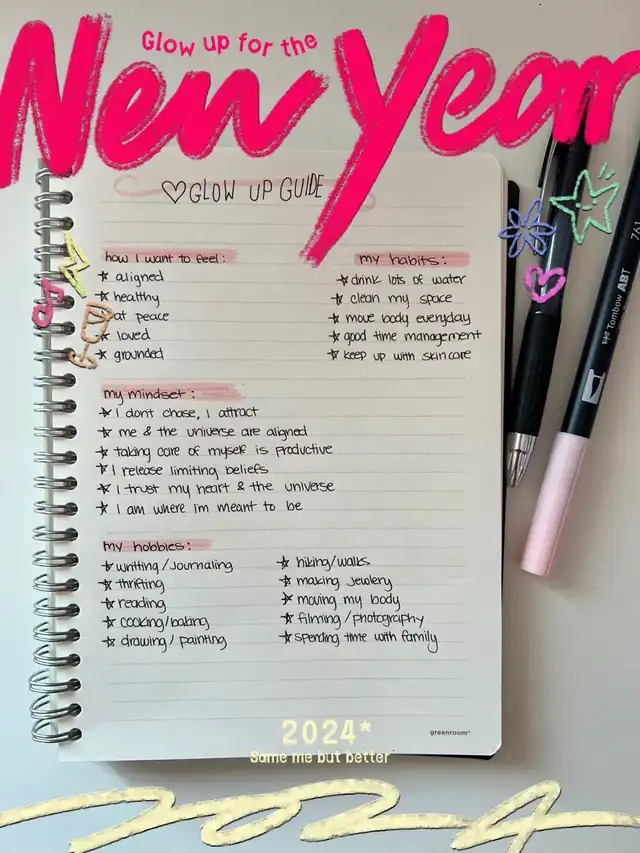 Glow up for the
New Year
♡GLOW UP GUIDE
how I want to feel:
☆ aligned
☆ healthy
☆ at peace
☆ loved
☆ grounded
my habits:
☆ drink lots of water
☆ clean my space
☆ move body everyday
☆ good time management
☆ keep up with skincare
my mindset:
☆ I don't chase, I attract
☆ me & the universe are aligned
☆ taking care of myself is productive
☆ I release limiting beliefs
☆ I trust my heart & the universe
☆ I am where im meant to be
my hobbies:
☆ writting/journaling
☆ thrifting
☆ reading
☆ cooking/baking
☆ drawing/painting
☆ hiking/walks
☆ making jewlery
☆ moving my body
☆ filming/photography
☆ spending time with family
2024*
Same me but better
greenroom®
Tombow ABT
761
2024